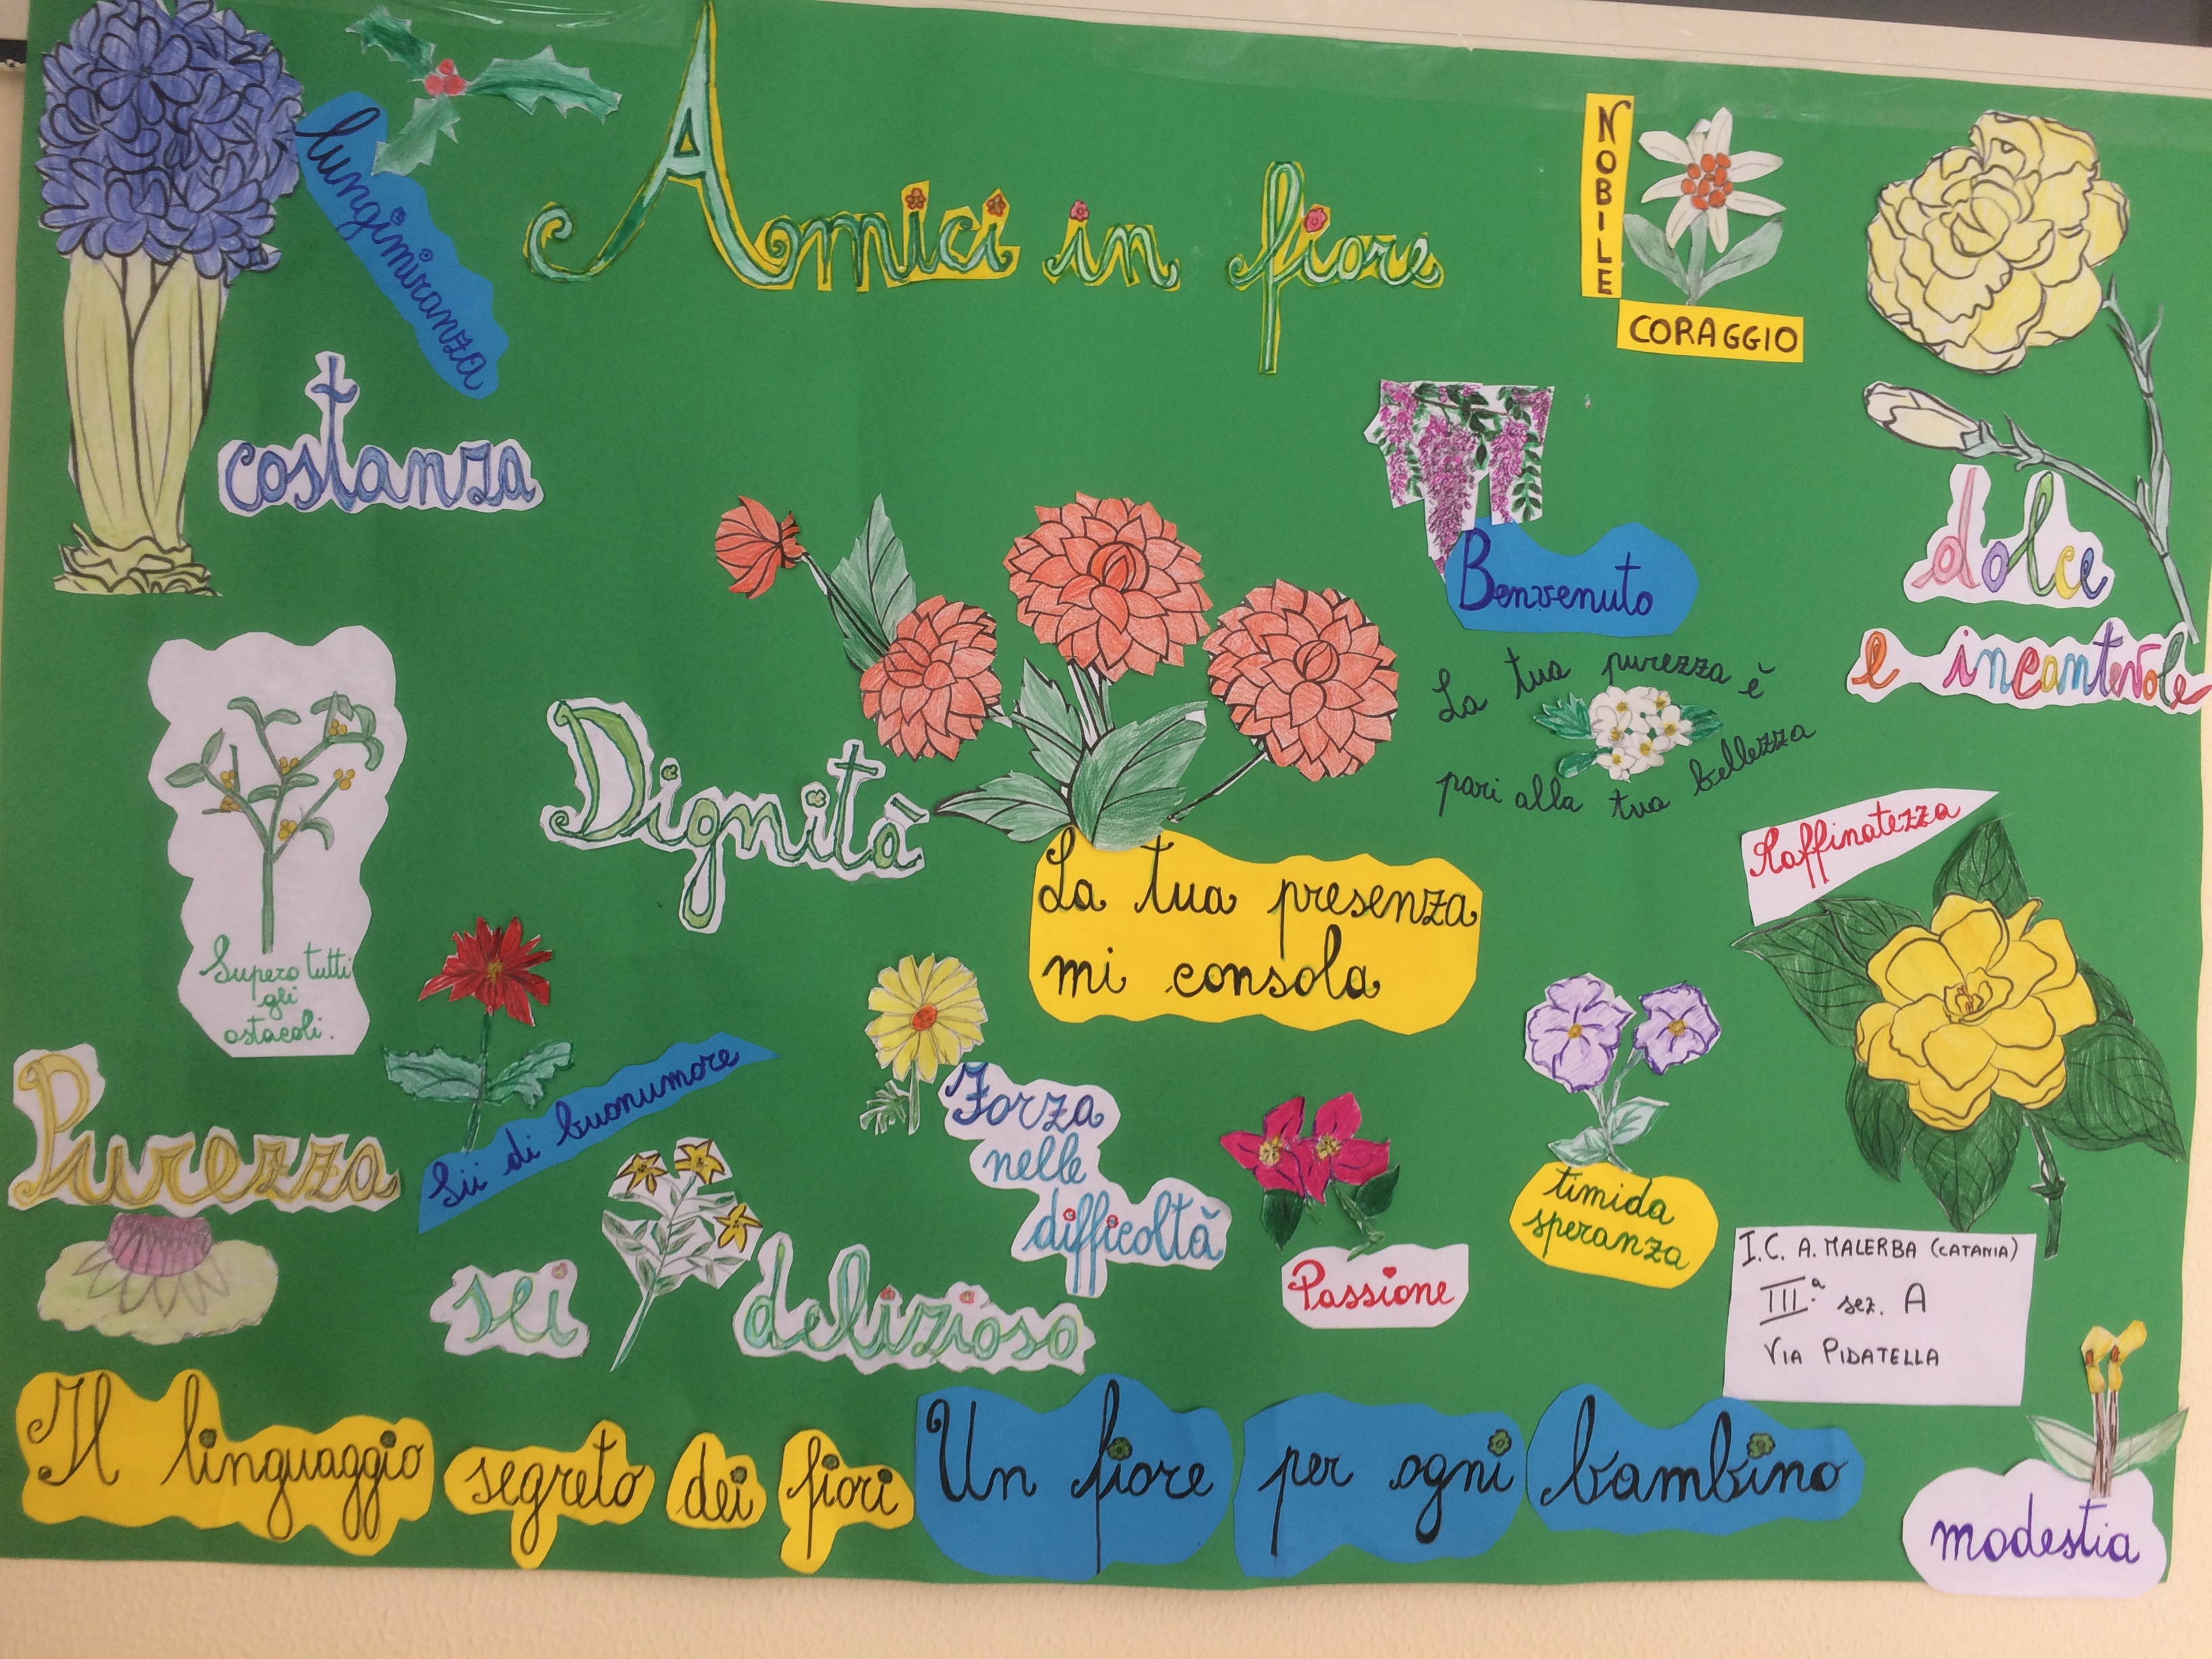 Amici in fiore
lungimiranza
NOBILE
CORAGGIO
costanza
Benvenuto
dolce
e incantevole
La tua purezza è
pari alla tua bellezza
Dignità
La tua presenza
mi consola
Raffinatezza
Supero tutti
gli
ostacoli.
Purezza
Sii di buonumore
Forza
nelle
difficoltà
timida
speranza
Passione
sei delizioso
I.C. A. MALERBA (CATANIA)
III.ª sez. A
VIA PIDATELLA
Il linguaggio segreto dei fiori Un fiore per ogni bambino
modestia